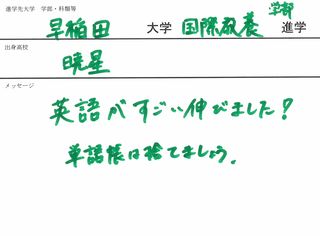 進学先大学 学部・科類等
早稲田 大学 国際教養 学部 進学
出身高校
暁星
メッセージ
英語がすごい伸びました?
単語帳は捨てましょう。